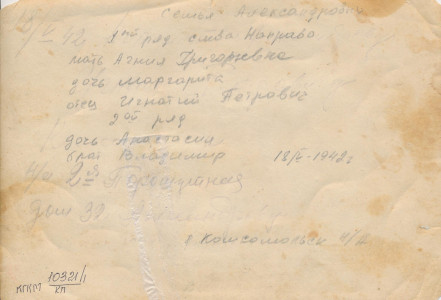 Семья Александрович
1ый ряд слева направо
мать Агния Григорьевна
дочь Маргарита
отец Игнатий Петрович
2ой ряд
дочь Анастасия
брат Владимир 18/V-1942г
2ая
дом 30
г Комсомольск н/А
КГКМ 10321/1
КП